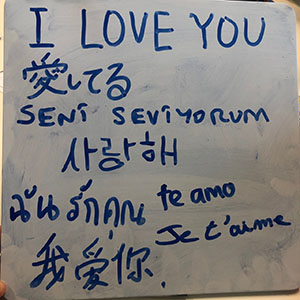 I LOVE YOU
愛してる
SENİ SEVİYORUM
사랑해
ฉันรักคุณ te amo
我爱你. Je t'aime